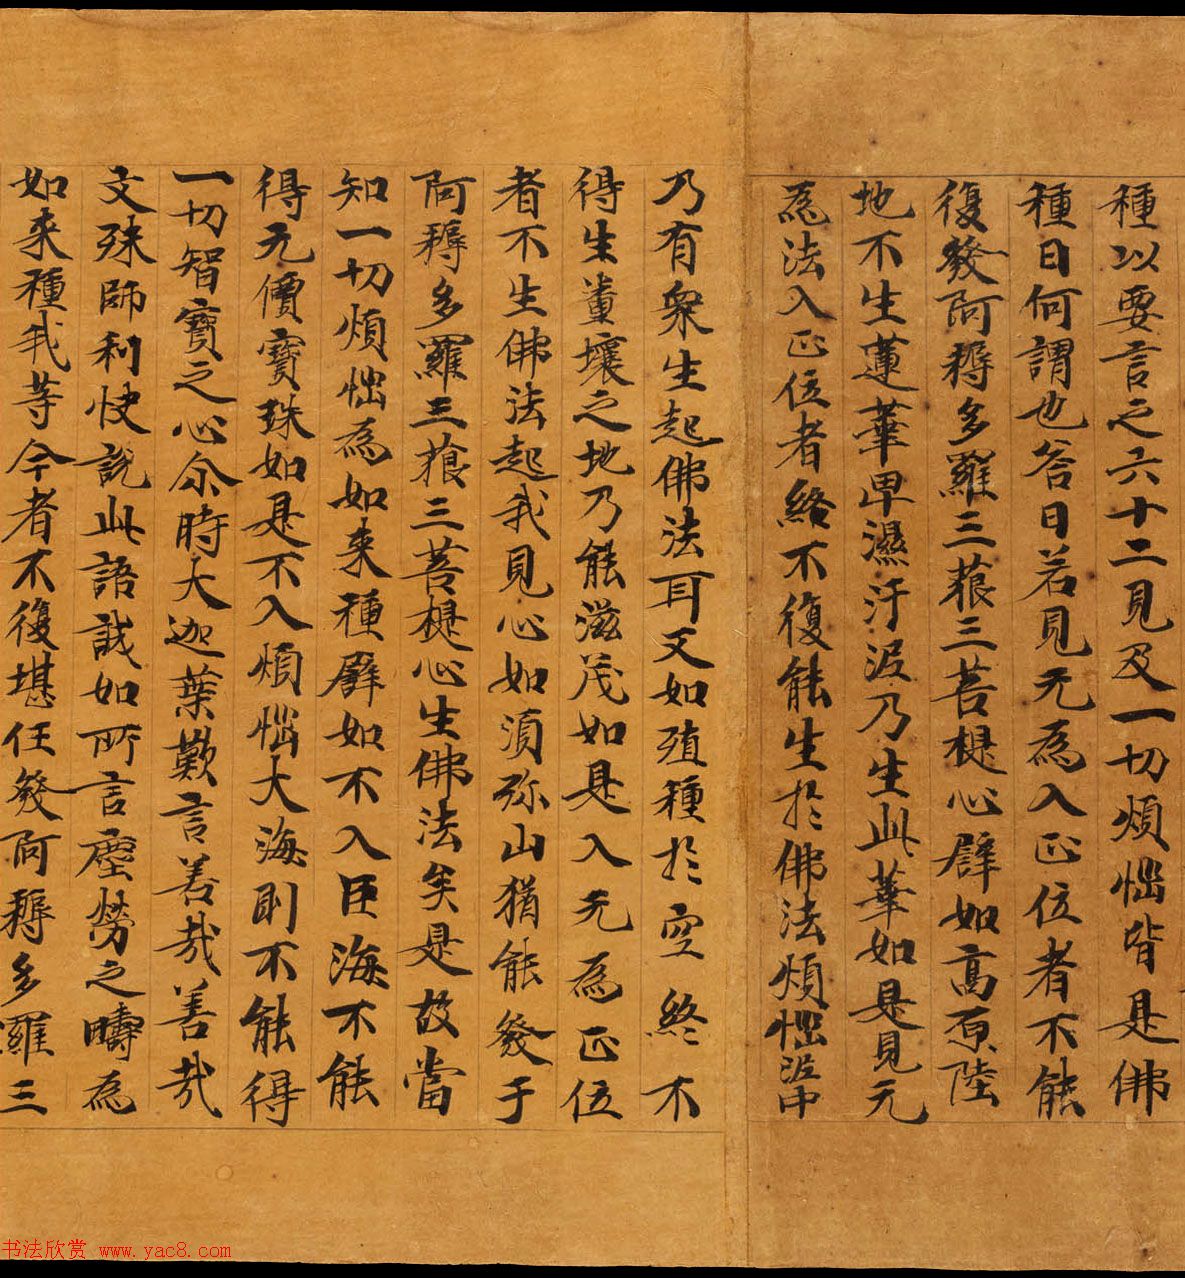 種以要言之六十二見及一切煩惱皆是佛
種曰何謂也答曰若見无為入正位者不能
復發阿耨多羅三藐三菩提心譬如高原陸
地不生蓮華卑濕汙泥乃生此華如是見无
為法入正位者終不復能生於佛法煩惱泥中
乃有衆生起佛法耳又如殖種於空終不
得生糞壤之地乃能滋茂如是入无為正位
者不生佛法起我見心如須弥山猶能發于
阿耨多羅三藐三菩提心生佛法矣是故當
知一切煩惱為如来種譬如不入巨海不能
得无價寶珠如是不入煩惱大海則不能得
一切智寶之心尒時大迦葉歎言善哉善哉
文殊師利快說此語誠如所言塵勞之疇為
如来種我等今者不復堪任發阿耨多羅三
书法欣赏 www.yac8.com